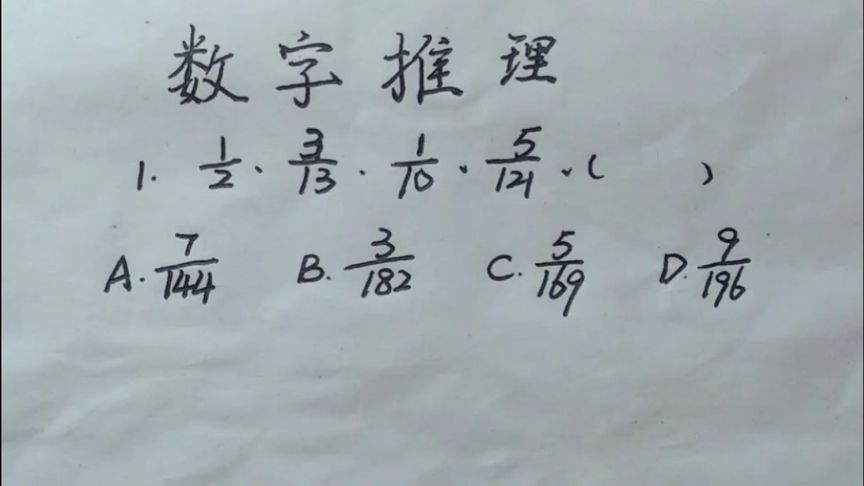 数字推理
1. 1/2 、 3/13 、 1/10 、 5/121 、 ( )
A. 7/144 B. 3/182 C. 5/169 D. 9/196